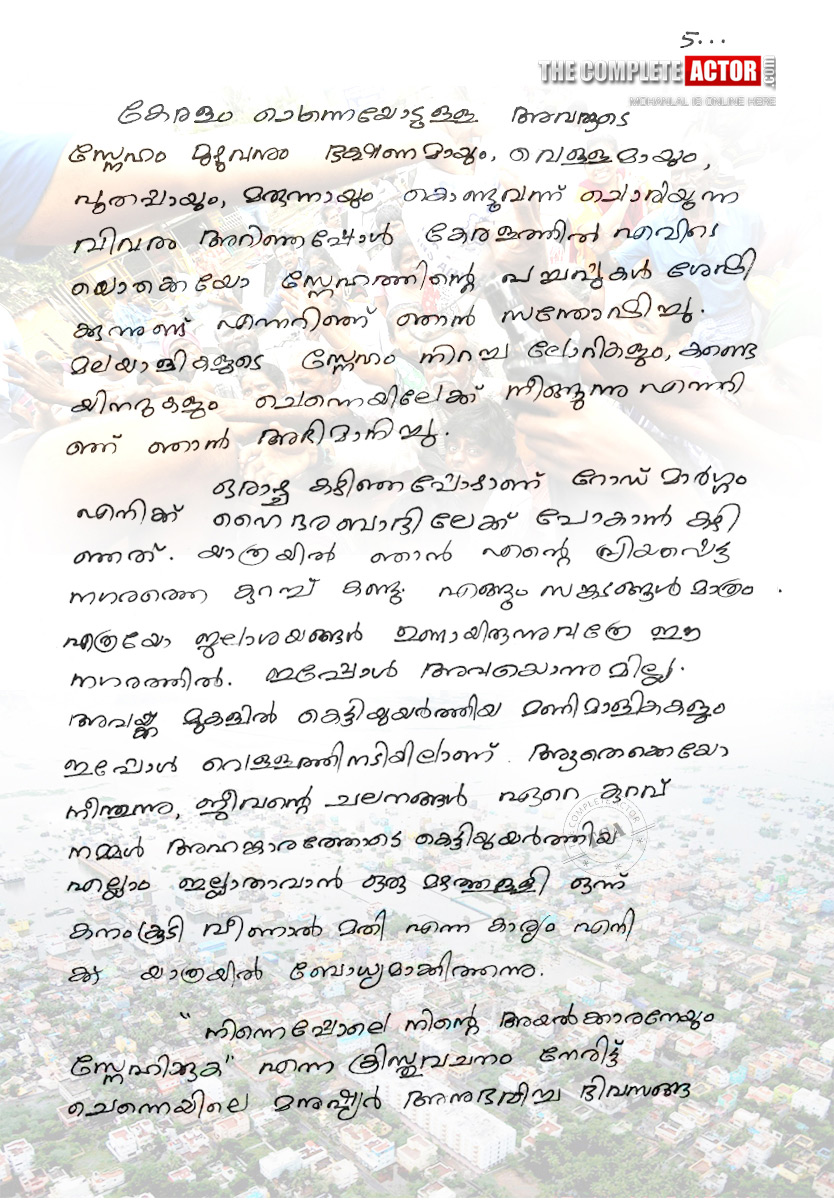 5...
THE COMPLETE ACTOR .com
MOHANLAL IS ONLINE HERE
കേരളം ചെന്നൈയോടുള്ള അവരുടെ
സ്നേഹം മുഴുവനും ഭക്ഷണമായും, വെള്ളമായും,
പുതപ്പായും, മരുന്നായും കൊണ്ടുവന്ന് ചൊരിയുന്ന
വിവരം അറിഞ്ഞപ്പോൾ കേരളത്തിൽ എവിടെ
യൊക്കെയോ സ്നേഹത്തിന്റെ പച്ചപ്പുകൾ ശേഷി
ക്കുന്നുണ്ട് എന്നറിഞ്ഞ് ഞാൻ സന്തോഷിച്ചു.
മലയാളികളുടെ സ്നേഹം നിറച്ച ലോറികളും, കണ്ടെ
യിനറുകളും ചെന്നൈയിലേക്ക് നീങ്ങുന്നു എന്നറി
ഞ്ഞ് ഞാൻ അഭിമാനിച്ചു.
ഒരാഴ്ച കഴിഞ്ഞപ്പോഴാണ് റോഡ് മാർഗ്ഗം
എനിക്ക് ഹൈദരബാദ്ദിലേക്ക് പോകാൻ കഴി
ഞ്ഞത്. യാത്രയിൽ ഞാൻ എന്റെ പ്രിയപ്പെട്ട
നഗരത്തെ കുറച്ച് കണ്ടു. എങ്ങും സങ്കടങ്ങൾ മാത്രം.
എത്രയോ ജലാശയങ്ങൾ ഉണ്ടായിരുന്നുവത്രേ ഈ
നഗരത്തിൽ. ഇപ്പോൾ അവയൊന്നുമില്ല.
അവയ്ക്കു മുകളിൽ കെട്ടിയുയർത്തിയ മണിമാളികകളും
ഇപ്പോൾ വെള്ളത്തിനടിയിലാണ്. ആരൊക്കെയോ
നീന്തുന്നു, ജീവന്റെ ചലനങ്ങൾ ഏറെ കുറവ്
നമ്മൾ അഹങ്കാരത്തോടെ കെട്ടിയുയർത്തിയ
എല്ലാം ഇല്ലാതാവാൻ ഒരു മഴത്തുള്ളി ഒന്ന്
കനംകൂടി വീണാൽ മതി എന്ന കാര്യം എനി
ക്കു യാത്രയിൽ ബോധ്യമാക്കിത്തന്നു.
"നിന്നെപ്പോലെ നിന്റെ അയൽക്കാരനേയും
സ്നേഹിക്കുക" എന്ന ക്രിസ്തുവചനം നേരിട്ട്
ചെന്നൈയിലെ മനുഷ്യർ അനുഭവിച്ച ദിവസങ്ങ